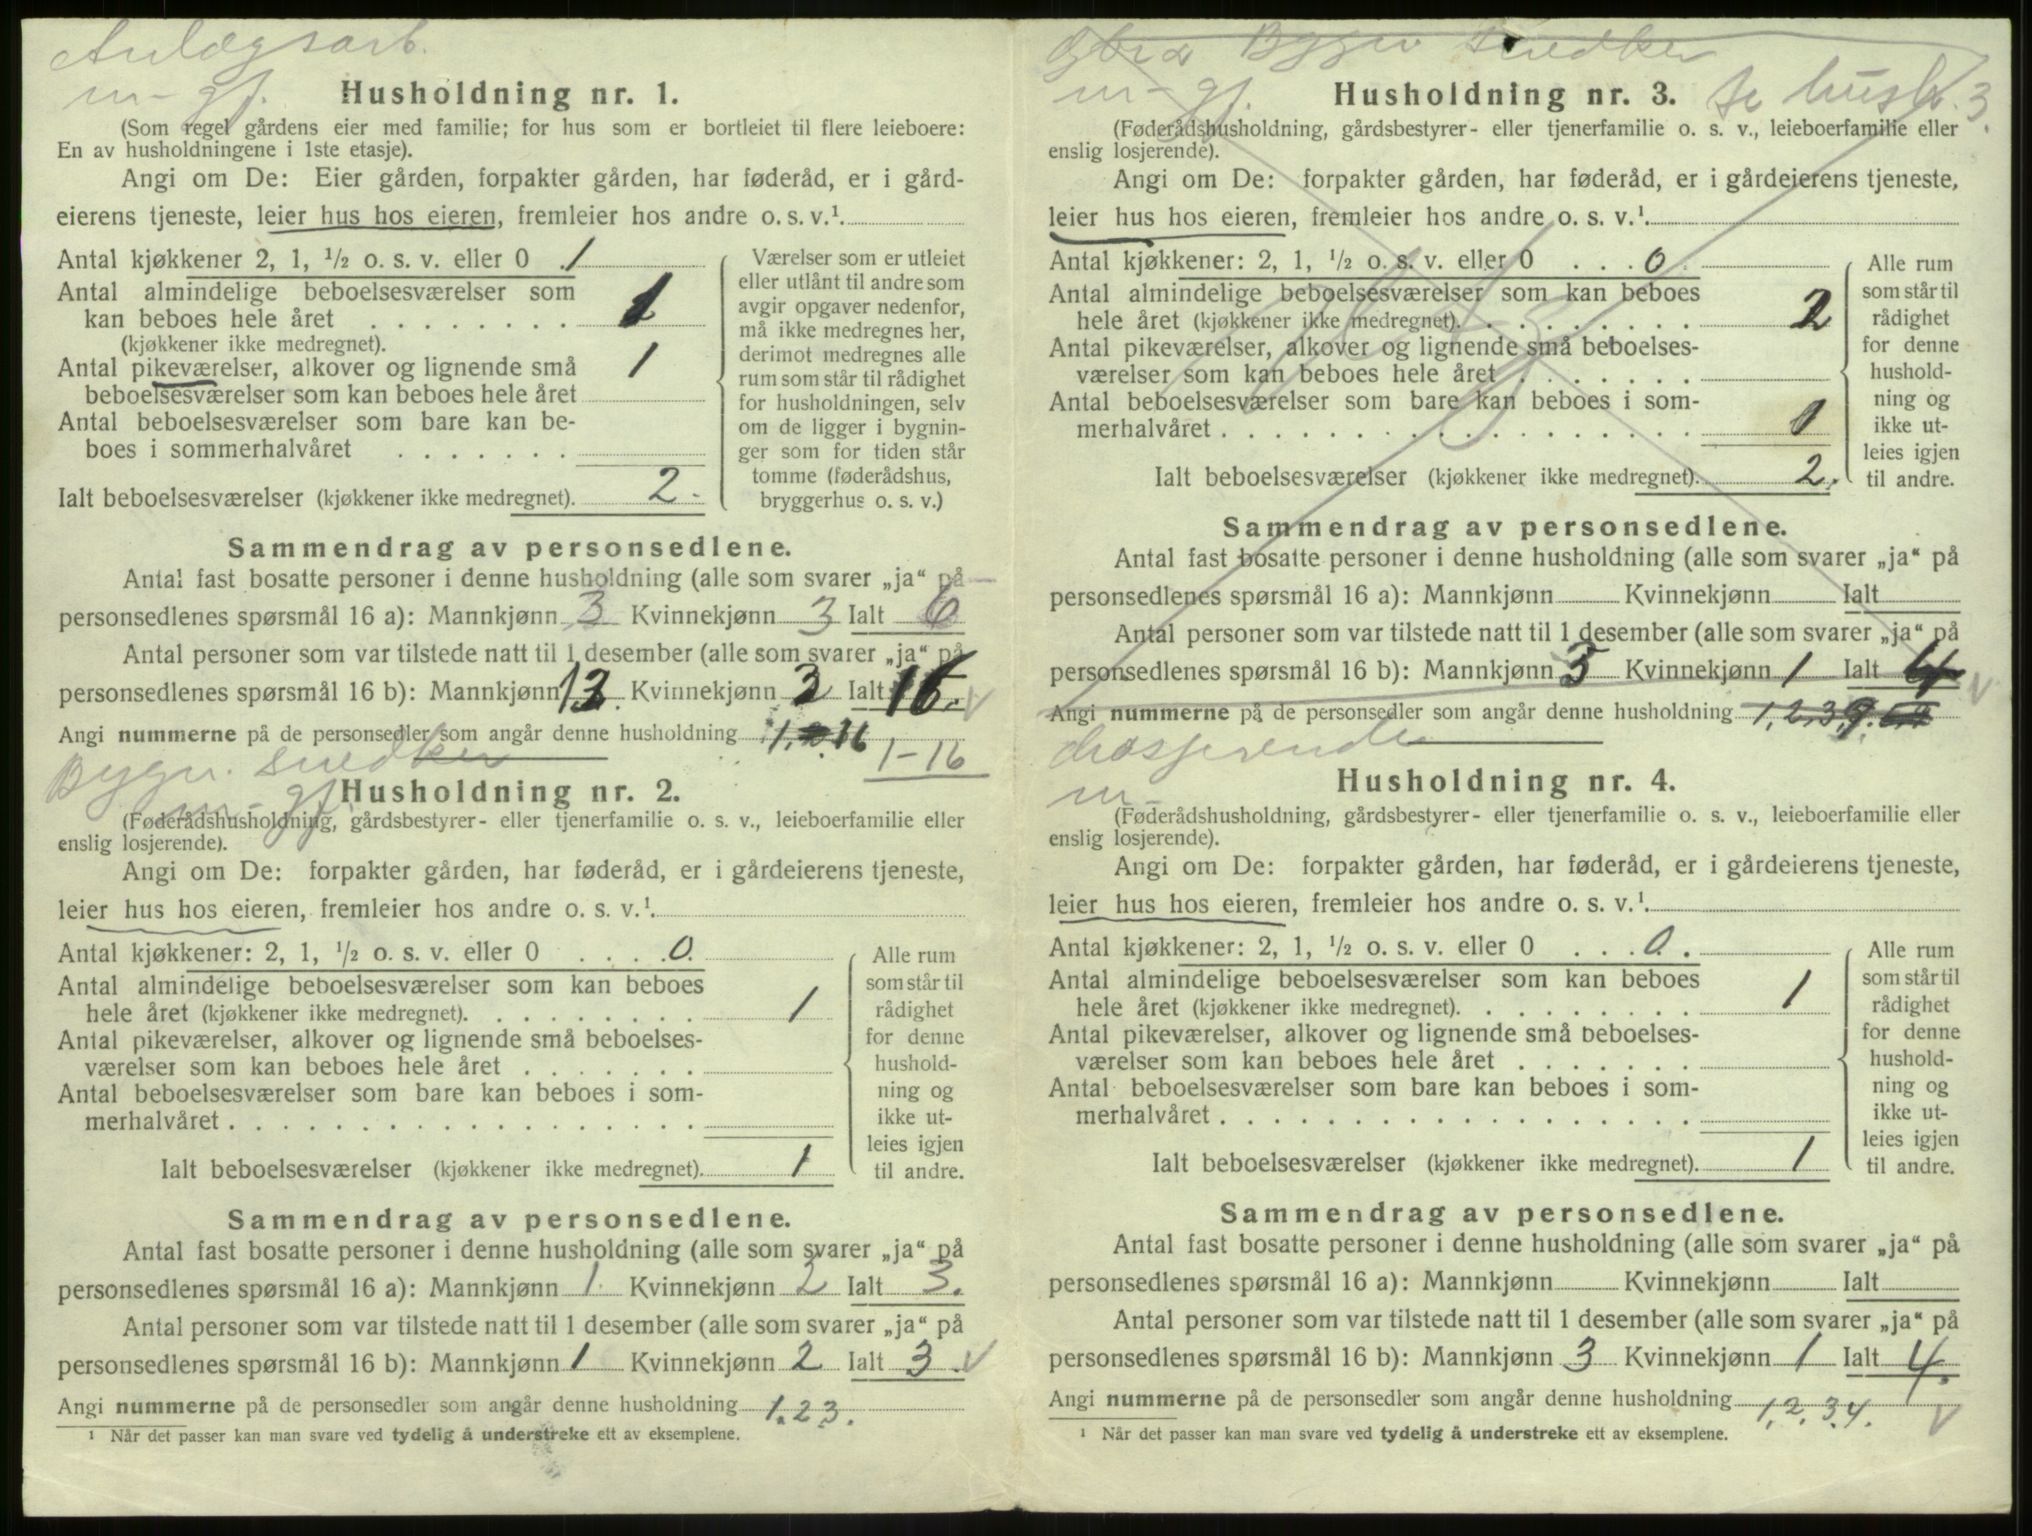 Anlægsarb.
m- gf.
Husholdning nr. 1.
(Som regel gårdens eier med familie; for hus som er bortleiet til flere leieboere:
En av husholdningene i 1ste etasje).
Angi om De: Eier gården, forpakter gården, har føderåd, er i gård-
eierens tjeneste, leier hus hos eieren, fremleier hos andre o. s. v.¹
Antal kjøkkener 2, 1, ½ o. s. v. eller 0 1
Antal almindelige beboelsesværelser som
kan beboes hele året 1
(kjøkkener ikke medregnet).
Antal pikeværelser, alkover og lignende små 1
beboelsesværelser som kan beboes hele året
Antal beboelsesværelser som bare kan be-
boes i sommerhalvåret
Ialt beboelsesværelser (kjøkkener ikke medregnet). 2.
Værelser som er utleiet
eller utlånt til andre som
avgir opgaver nedenfor,
må ikke medregnes her,
derimot medregnes alle
rum som står til rådighet
for husholdningen, selv
om de ligger i bygnin-
ger som for tiden står
tomme (føderådshus,
bryggerhus o. s. v.)
Sammendrag av personsedlene.
Antal fast bosatte personer i denne husholdning (alle som svarer „ja“ på
personsedlenes spørsmål 16 a): Mannkjønn 3 Kvinnekjønn 3 Ialt 6
Antal personer som var tilstede natt til 1 desember (alle som svarer „ja“ på
personsedlenes spørsmål 16 b): Mannkjønn 13. Kvinnekjønn 3 Ialt 16.
Angi nummerne på de personsedler som angår denne husholdning 16
1-16
Bygn. snedker
m- gf.
Husholdning nr. 2.
(Føderådshusholdning, gårdsbestyrer- eller tjenerfamilie o. s. v., leieboerfamilie eller
enslig losjerende).
Angi om De: forpakter gården, har føderåd, er i gårdeierens tjeneste,
leier hus hos eieren, fremleier hos andre o. s. v.¹
Antal kjøkkener: 2, 1, ½ o. s. v. eller 0 0.
Antal almindelige beboelsesværelser som kan beboes
hele året (kjøkkener ikke medregnet). 1
Antal pikeværelser, alkover og lignende små beboelses-
værelser som kan beboes hele året
Antal beboelsesværelser som bare kan beboes i som-
merhalvåret
Ialt beboelsesværelser (kjøkkener ikke medregnet). 1
Alle rum
som står til
rådighet
for denne
hushold-
ning og
ikke ut-
leies igjen
til andre.
Sammendrag av personsedlene.
Antal fast bosatte personer i denne husholdning (alle som svarer „ja“ på
personsedlenes spørsmål 16 a): Mannkjønn 1. Kvinnekjønn 2 Ialt 3.
Antal personer som var tilstede natt til 1 desember (alle som svarer „ja“ på
personsedlenes spørsmål 16 b): Mannkjønn 1 Kvinnekjønn 2 Ialt 3.
Angi nummerne på de personsedler som angår denne husholdning 1.2 3.
¹ Når det passer kan man svare ved tydelig å understreke ett av eksemplene.
Bygn Snedker
m- gf.
Husholdning nr. 3. se hush. 3.
(Føderådshusholdning, gårdsbestyrer- eller tjenerfamilie o. s. v., leieboerfamilie eller
enslig losjerende).
Angi om De: forpakter gården, har føderåd, er i gårdeierens tjeneste,
leier hus hos eieren, fremleier hos andre o. s. v.¹
Antal kjøkkener: 2, 1, ½ o. s. v. eller 0 0.
Antal almindelige beboelsesværelser som kan beboes
hele året (kjøkkener ikke medregnet). 2
Antal pikeværelser, alkover og lignende små beboelses-
værelser som kan beboes hele året
Antal beboelsesværelser som bare kan beboes i som-
merhalvåret 0
Ialt beboelsesværelser (kjøkkener ikke medregnet). 2.
Alle rum
som står til
rådighet
for denne
hushold-
ning og
ikke ut-
leies igjen
til andre.
Sammendrag av personsedlene.
Antal fast bosatte personer i denne husholdning (alle som svarer „ja“ på
personsedlenes spørsmål 16 a): Mannkjønn Kvinnekjønn Ialt
Antal personer som var tilstede natt til 1 desember (alle som svarer „ja“ på
personsedlenes spørsmål 16 b): Mannkjønn 3 Kvinnekjønn 1 Ialt 4
Angi nummerne på de personsedler som angår denne husholdning 1,2,3,
Losjerende
m-
Husholdning nr. 4.
(Føderådshusholdning, gårdsbestyrer- eller tjenerfamilie o. s. v., leieboerfamilie eller
enslig losjerende).
Angi om De: forpakter gården, har føderåd, er i gårdeierens tjeneste,
leier hus hos eieren, fremleier hos andre o. s. v.¹
Antal kjøkkener: 2, 1, ½ o. s. v. eller 0 0.
Antal almindelige beboelsesværelser som kan beboes
hele året (kjøkkener ikke medregnet). 1
Antal pikeværelser, alkover og lignende små beboelses-
værelser som kan beboes hele året
Antal beboelsesværelser som bare kan beboes i som-
merhalvåret
Ialt beboelsesværelser (kjøkkener ikke medregnet). 1
Alle rum
som står til
rådighet
for denne
hushold-
ning og
ikke ut-
leies igjen
til andre.
Sammendrag av personsedlene.
Antal fast bosatte personer i denne husholdning (alle som svarer „ja“ på
personsedlenes spørsmål 16 a): Mannkjønn Kvinnekjønn Ialt
Antal personer som var tilstede natt til 1 desember (alle som svarer „ja“ på
personsedlenes spørsmål 16 b): Mannkjønn 3 Kvinnekjønn 1 Ialt 4.
Angi nummerne på de personsedler som angår denne husholdning 1,2,3,4.
¹ Når det passer kan man svare ved tydelig å understreke ett av eksemplene.